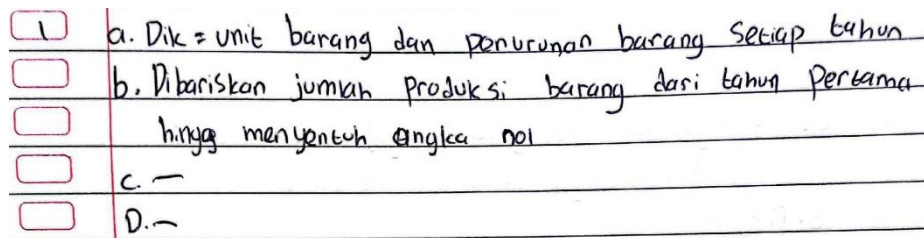 1 a. Dik = unit barang dan penurunan barang setiap tahun
b. Dibariskan jumlah produksi barang dari tahun pertama
hingg menyentuh angka nol
c. —
D. —